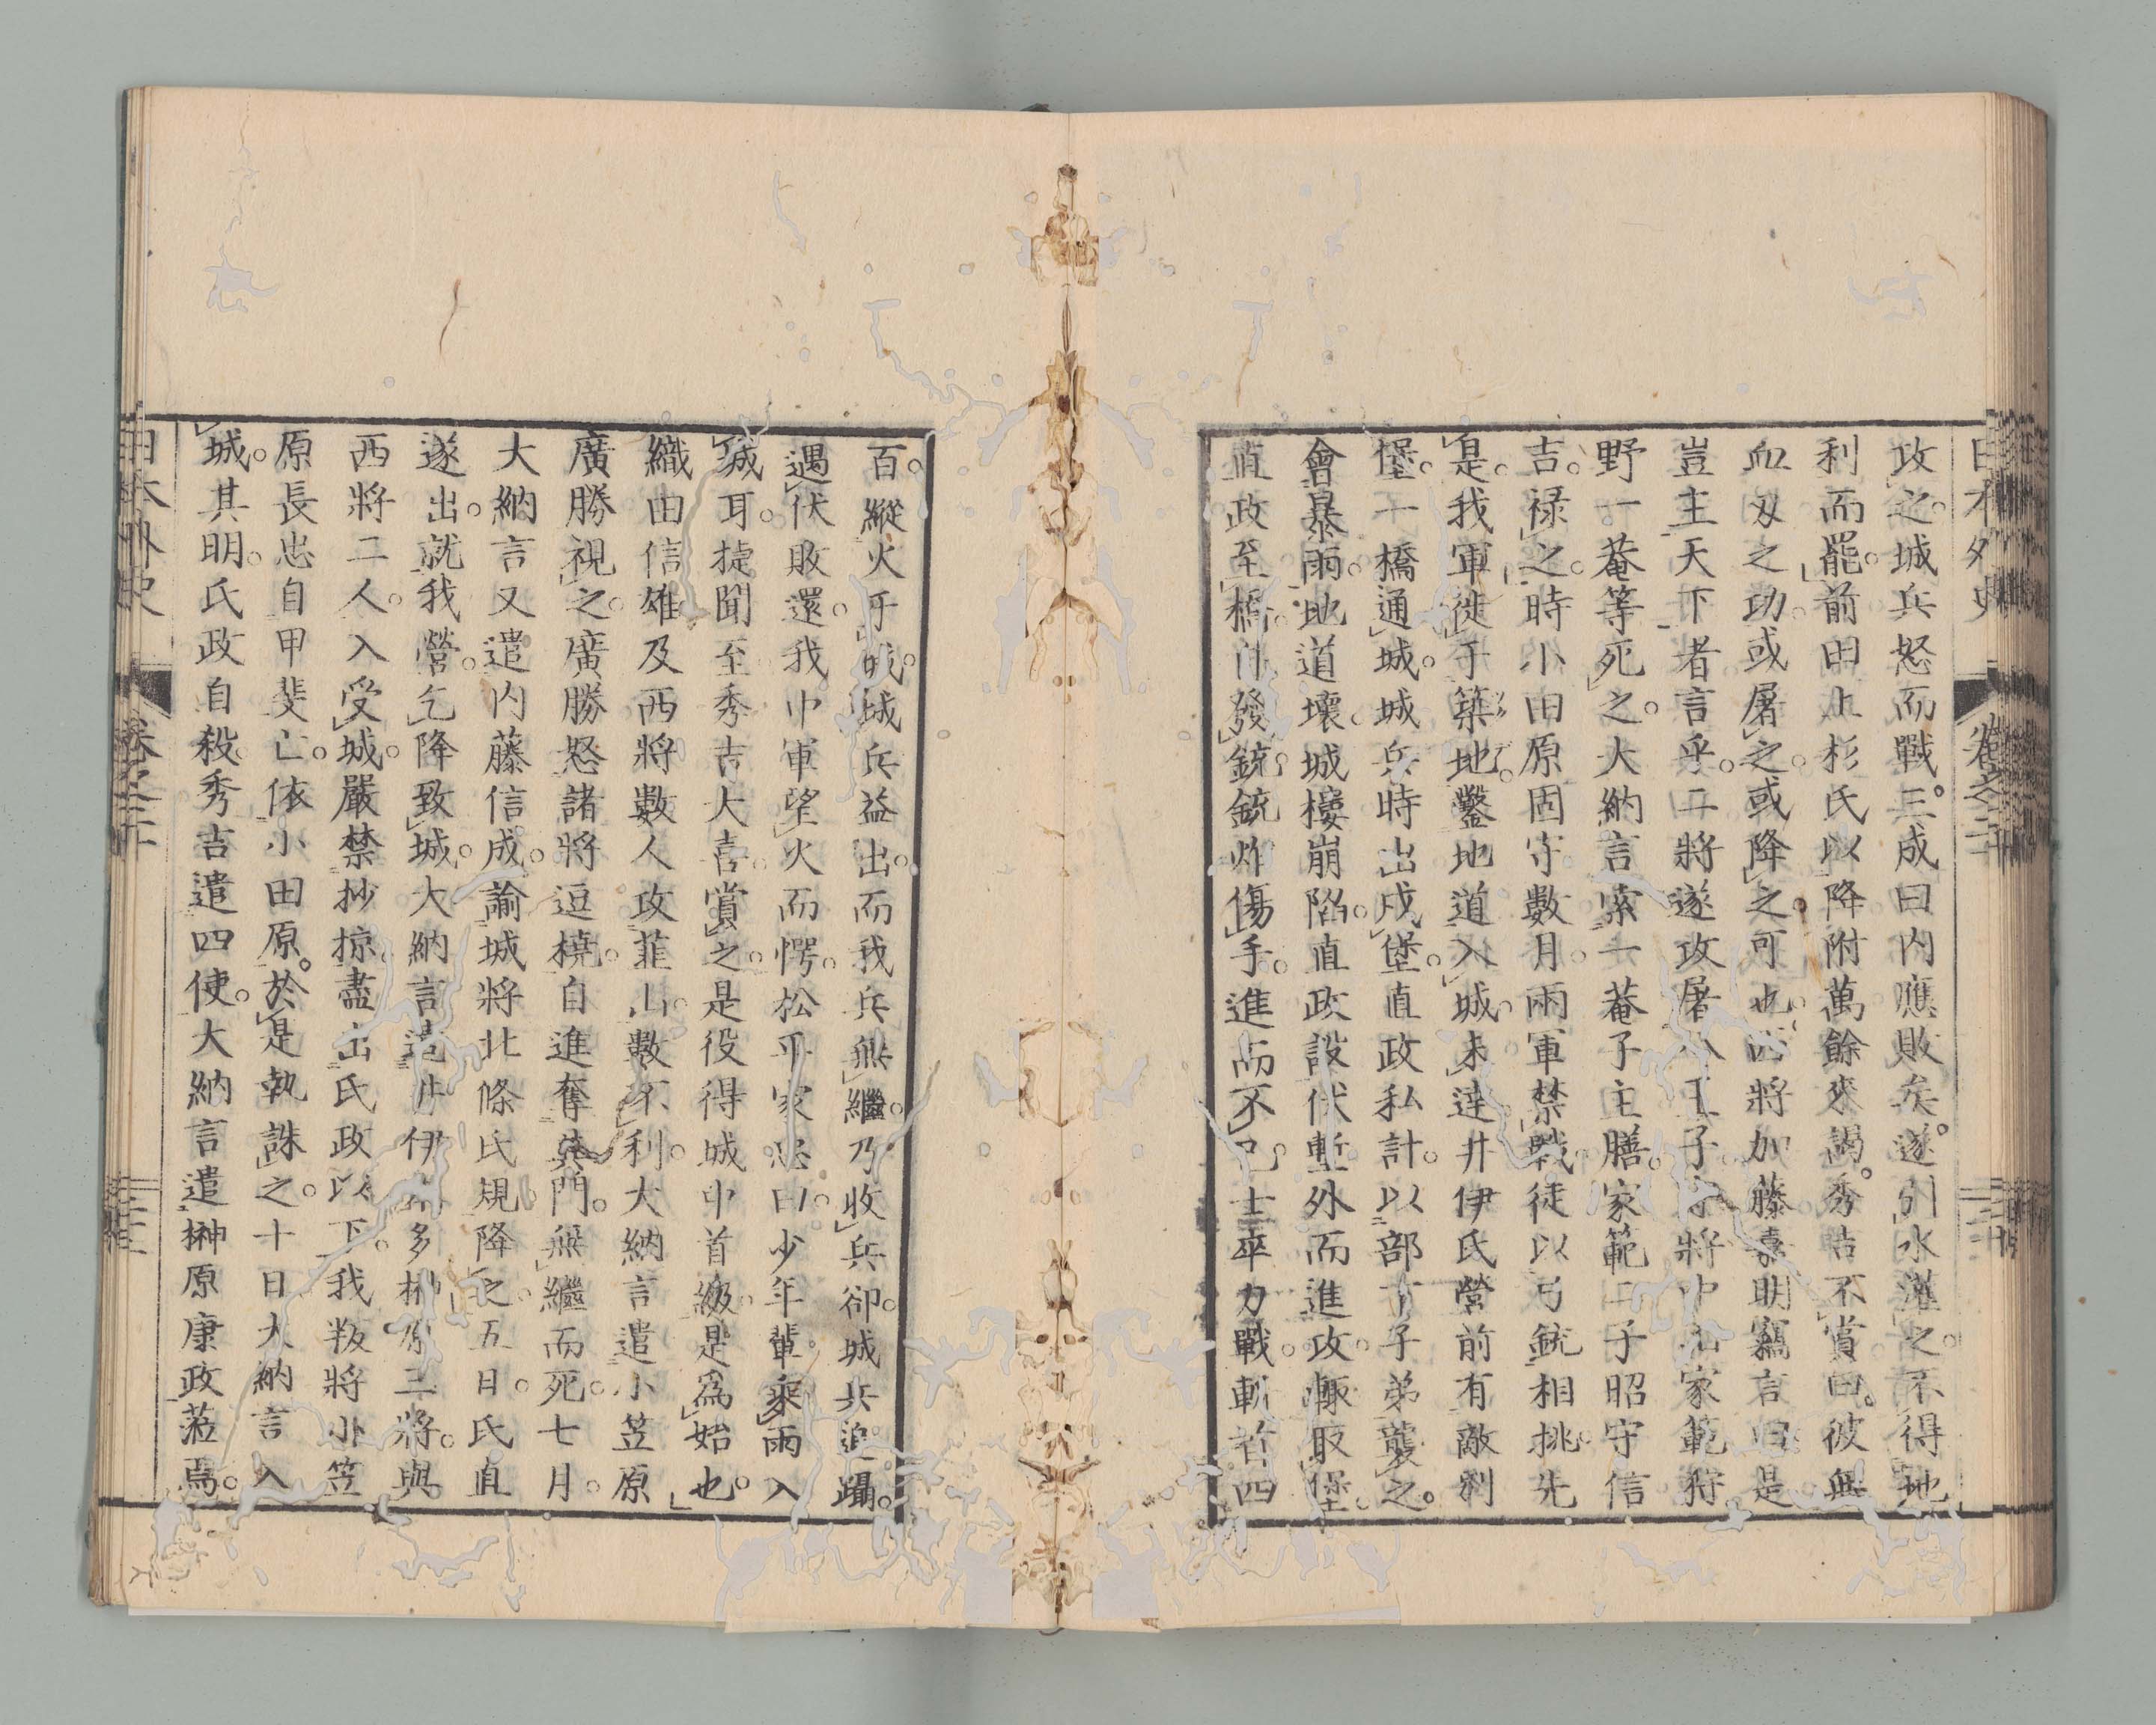 日本外史 卷之二十
攻之。城兵怒而戰。三成曰内應敗矣。遂引水灌之。不得地
利而罷。前田上杉氏以降附萬餘來謁。秀吉不賞曰。彼無
血刃之功。或屠之。或降之可也。西將加藤嘉明竊言曰。是
豈主天下者言乎。二將遂攻屠八王子守將中山家範狩
野一菴等死之。大納言索一菴子主膳。家範二子昭守信
吉。祿之。時小田原固守數月。兩軍禁戰。徒以弓銃相挑。先
是。我軍徙于築地。鑿地道入城。未達。井伊氏營前有敵別
堡。一橋通城。城兵時出戍堡。直政私計。以部下子弟襲之。
會暴雨。地道壞。城樓崩陷。直政設伏塹外而進攻。輙取堡。
直政至橋。門發銃。銃炸傷手。進而不已。士卒力戰。斬首四
百。縱火乎城。城兵益出。而我兵無繼。乃收兵卻。城兵追躡。
遇伏敗還。我中軍望火而愕。松平家忠曰。少年輩乘雨入
城耳。捷聞至秀吉大喜。賞之。是役得城中首級。是爲始也。
織田信雄及西將數人攻韮山。數不利。大納言遣小笠原
廣勝視之。廣勝怒諸將逗橈。自進奪英門。無繼而死。七月。
大納言又遣内藤信成。諭城將北條氏規降之。五日。氏直
遂出。就我營。乞降致城。大納言遣井伊本多榊原三將。與
西將二人。入受城。嚴禁抄掠。盡出氏政以下。我叛將小笠
原長忠自甲斐亡。依小田原。於是執誅之。十日大納言入
城。其明。氏政自殺。秀吉遣四使。大納言遣榊原康政涖焉。
日本外史 卷之二十